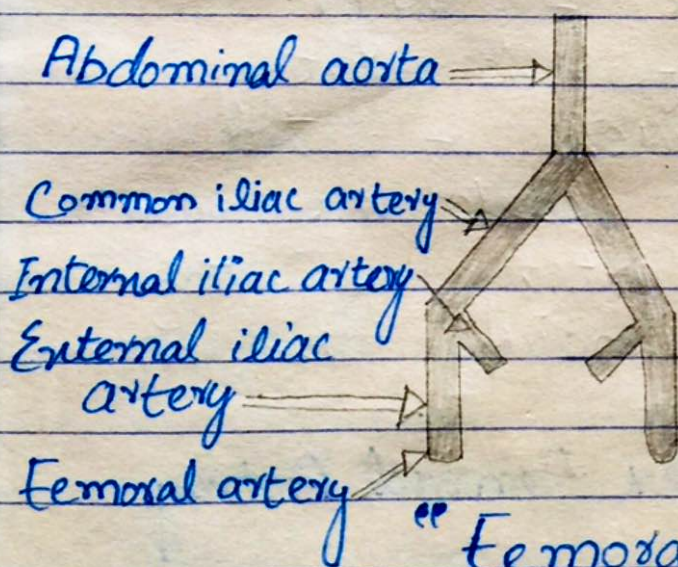 Abdominal aorta
Common iliac artery
Internal iliac artery
External iliac
artery
Femoral artery
"